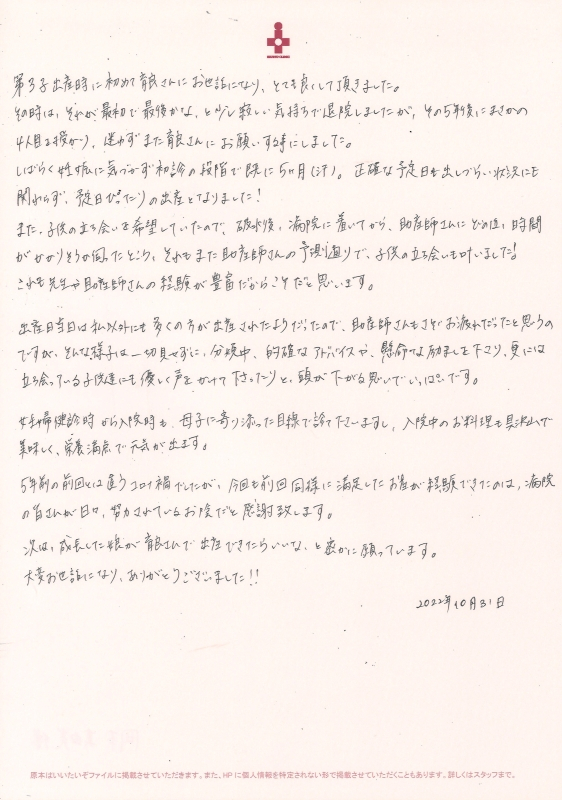 第3子出産時に初めて育良さんにお世話になり、とても良くして頂きました。
その時は、それが最初で最後かな、と少し寂しい気持ちで退院しましたが、その5年後にまさかの
4人目を授かり、迷わずまた育良さんにお願いする事にしました。
しばらく妊娠に気づかず初診の段階で既に5ヶ月(汗)。正確な予定日も出しづらい状況にも
関わらず、予定日ぴったりの出産となりました!
また、子供の立ち会いを希望していたので、破水後、病院に着いてから、助産師さんにどの位時間
がかかりそうか伺ったところ、それもまた助産師さんの予測通りで、子供の立ち会いも叶いました!
これも先生や助産師さんの経験が豊富だからこそだと思います。
出産日当日は私以外にも多くの方が出産されたようだったので、助産師さんもさぞお疲れだったと思うの
ですが、そんな様子は一切見せずに、分娩中、的確なアドバイスや、懸命な励ましを下さり、更には
立ち会っている子供達にも優しく声をかけて下さったりと、頭が下がる思いでいっぱいです。
妊婦健診時から入院時も、母子に寄り添った目線で診て下さいますし、入院中のお料理も具沢山で
美味しく、栄養満点で元気が出ます。
5年前の前回とは違うコロナ禍でしたが、今回も前回同様に満足したお産が経験できたのは、病院
の皆さんが日々、努力されているお陰だと感謝致します。
次は、成長した娘が育良さんで出産できたらいいな、と密かに願っています。
大変お世話になり、ありがとうございました!!
2022年10月31日
原本はいいたいぞファイルに掲載させていただきます。また、HPに個人情報を特定されない形で掲載させていただくこともあります。詳しくはスタッフまで。